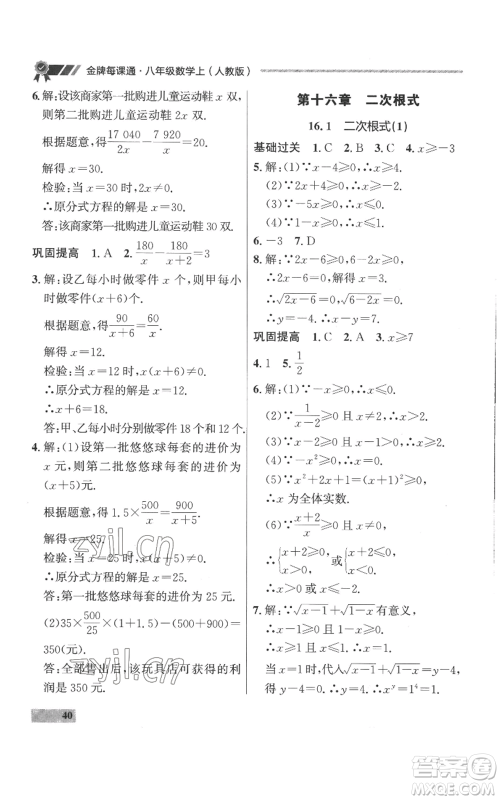 金牌每课通·八年级数学上(人教版)
6. 解:设该商家第一批购进儿童运动鞋 x 双,
则第二批购进儿童运动鞋 2x 双.
根据题意,得 17 040/2x − 7 920/x =10.
解得 x=30.
检验:当 x=30 时,2x≠0.
∴原分式方程的解为 x=30.
答:该商家第一批购进儿童运动鞋 30 双.
巩固提高 1. A 2. 180/x − 180/(x+2) =3
3. 解:设乙每小时做零件 x 个,则甲每小
时做零件(x+6)个.
根据题意,得 90/(x+6) = 60/x.
解得 x=12.
检验:当 x=12 时,x(x+6)≠0.
∴原分式方程的解为 x=12.
∴x+6=18.
答:甲、乙每小时做零件 18 个和 12 个.
4. 解:(1)设第一批悠悠球每套的进价为
x 元,则第二批悠悠球每套的进价为
(x+5)元.
根据题意,得 1.5× 500/x = 900/(x+5).
解得 x=25.
检验:当 x=25 时,x(x+5)≠0.
∴原分式方程的解为 x=25.
答:第一批悠悠球每套的进价为 25 元.
(2)35× 500/25 ×(1+1.5)−(500+900)=
350(元).
答:全部售出后,该玩具店可获得的利
润是 350 元.
40
第十六章 二次根式
16.1 二次根式(1)
基础过关 1. C 2. B 3. C 4. x≥−3
5. 解:(1)∵x−4≥0,∴x≥4.
(2)∵2x+4≥0,∴x≥−2.
(3)∵−5x≥0,∴x≤0.
(4)∵1−x≥0,∴x≤1.
6. −3 7. D
8. 解:∵2x−6≥0,6−2x≥0,∴x=3.
∴√(2x−6)=0,√(6−2x)=0.
∴y=−4.
巩固提高 1. A 2. A 3. x≥7
4. 1 5. 1/2
6. 解:(1)∵ 1/(x−2) ≥0 且 x≠2,∴x>2.
(2)∵−x≥0,∴x≤0.
(3)∵x+2≥0 且 x≠0,
∴x≥−2 且 x≠0.
(4)∵x²≥0,∴x²+2>0.
∴x 为全体实数.
(5)∵x²+2x+1=(x+1)²≥0,
∴x 为全体实数.
(6)∵ (x+2)/x ≥0,
∴{x+2≥0, x>0 或{x+2≤0, x<0.
∴x>0 或 x≤−2.
7. 解:∵√(x−1)+√(1−x)有意义,
∴{x−1≥0, 1−x≥0.
∴x=1. 当 x=1 时,代入√(x−1)+√(1−x)=
y+4,
∴y=−4.
zyjl.cn
zyjl.cn